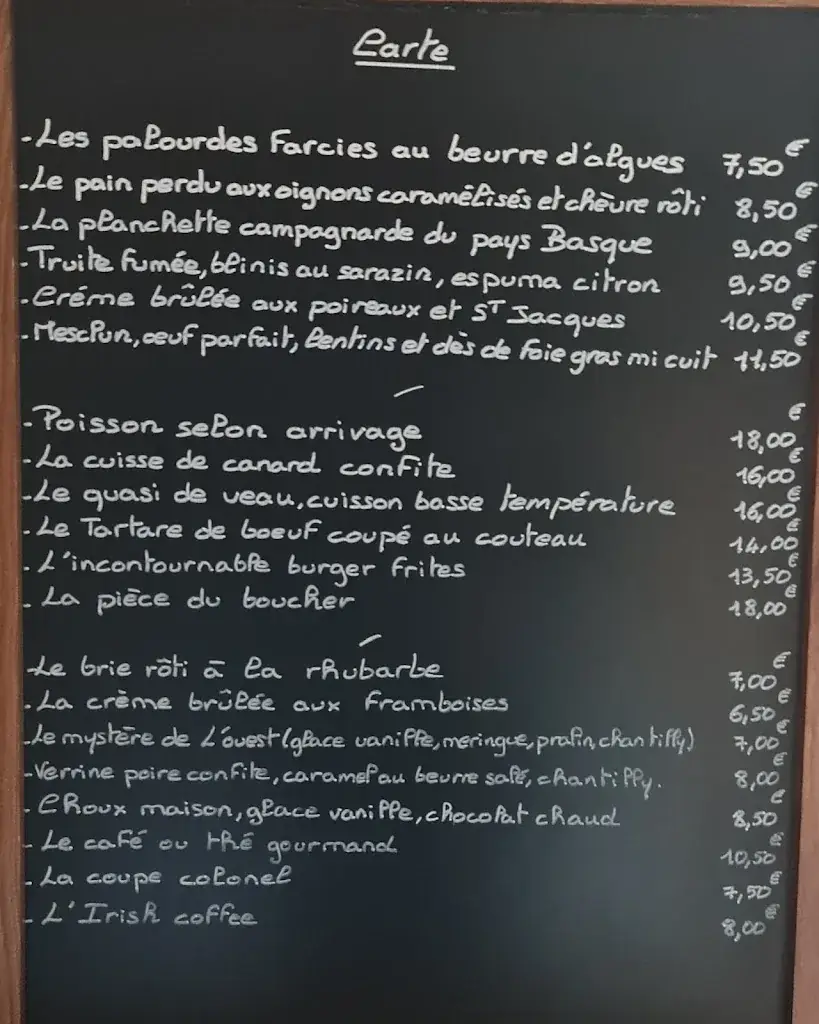 Carte
- Les palourdes farcies au beurre d'algues 7,50 €
- Le pain perdu aux oignons caramélisés et chèvre rôti 8,50 €
- La planchette campagnarde du pays Basque 9,00 €
- Truite fumée, blinis au sarazin, espuma citron 9,50 €
- Créme brûlée aux poireaux et ST Jacques 10,50 €
- Mesclun, oeuf parfait, lentins et dès de foie gras mi cuit 11,50 €
- Poisson selon arrivage 18,00 €
- La cuisse de canard confite 16,00 €
- Le quasi de veau, cuisson basse température 16,00 €
- Le Tartare de boeuf coupé au couteau 14,00 €
- L'incontournable burger frites 13,50 €
- La pièce du boucher 18,00 €
- Le brie rôti à la rhubarbe 7,00 €
- La crème brûlée aux framboises 6,50 €
- Le mystère de L'ouest (glace vanille, meringue, pralin, chantilly) 7,00 €
- Verrine poire confite, caramel au beurre salé, chantilly. 8,00 €
- Choux maison, glace vanille, chocolat chaud 8,50 €
- Le café ou thé gourmand 10,50 €
- La coupe colonel 7,50 €
- L'Irish coffee 8,00 €